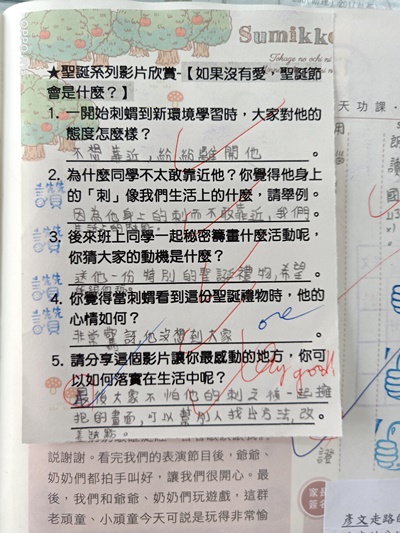 Sumikko
★聖誕系列影片欣賞-【如果沒有愛，聖誕節
會是什麼？】
1. 一開始刺蝟到新環境學習時，大家對他的
態度怎麼樣？
不想靠近，紛紛離開他。
2. 為什麼同學不太敢靠近他？你覺得他身上
的「刺」像我們生活上的什麼，請舉例。
因為他身上的刺而不敢靠近，我們
3. 後來班上同學一起秘密籌畫什麼活動呢，
你猜大家的動機是什麼？
送他一份特別的聖誕禮物，希望
4. 你覺得當刺蝟看到這份聖誕禮物時，他的
心情如何？
非常驚訝，他沒想到大家
5. 請分享這個影片讓你最感動的地方，你可
以如何落實在生活中呢？
Very good!
最後大家不怕他的刺之後一起擁
抱的畫面，可以幫別人找出方法，改
說謝謝。看完我們的表演節目後，爺爺、
奶奶們都拍手叫好，讓我們很開心。最
後，我們和爺爺、奶奶們玩遊戲，這群
老頑童、小頑童今天可說是玩得非常愉
天功課
彥文走路的